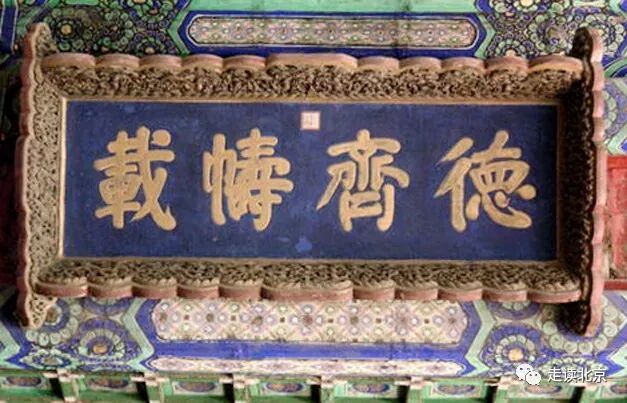 德齊幬載
走读北京